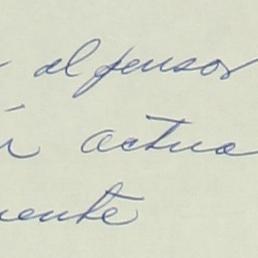 al pensar
actua
mente